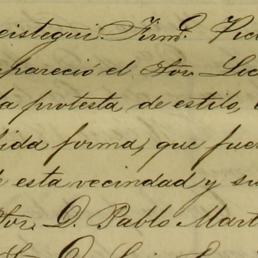 eistegui. Firmo. Vic
pareció el Sor. Lic
la protesta de estilo,
ida forma, que fue
e esta vecindad y su
Sor. D. Pablo Mart